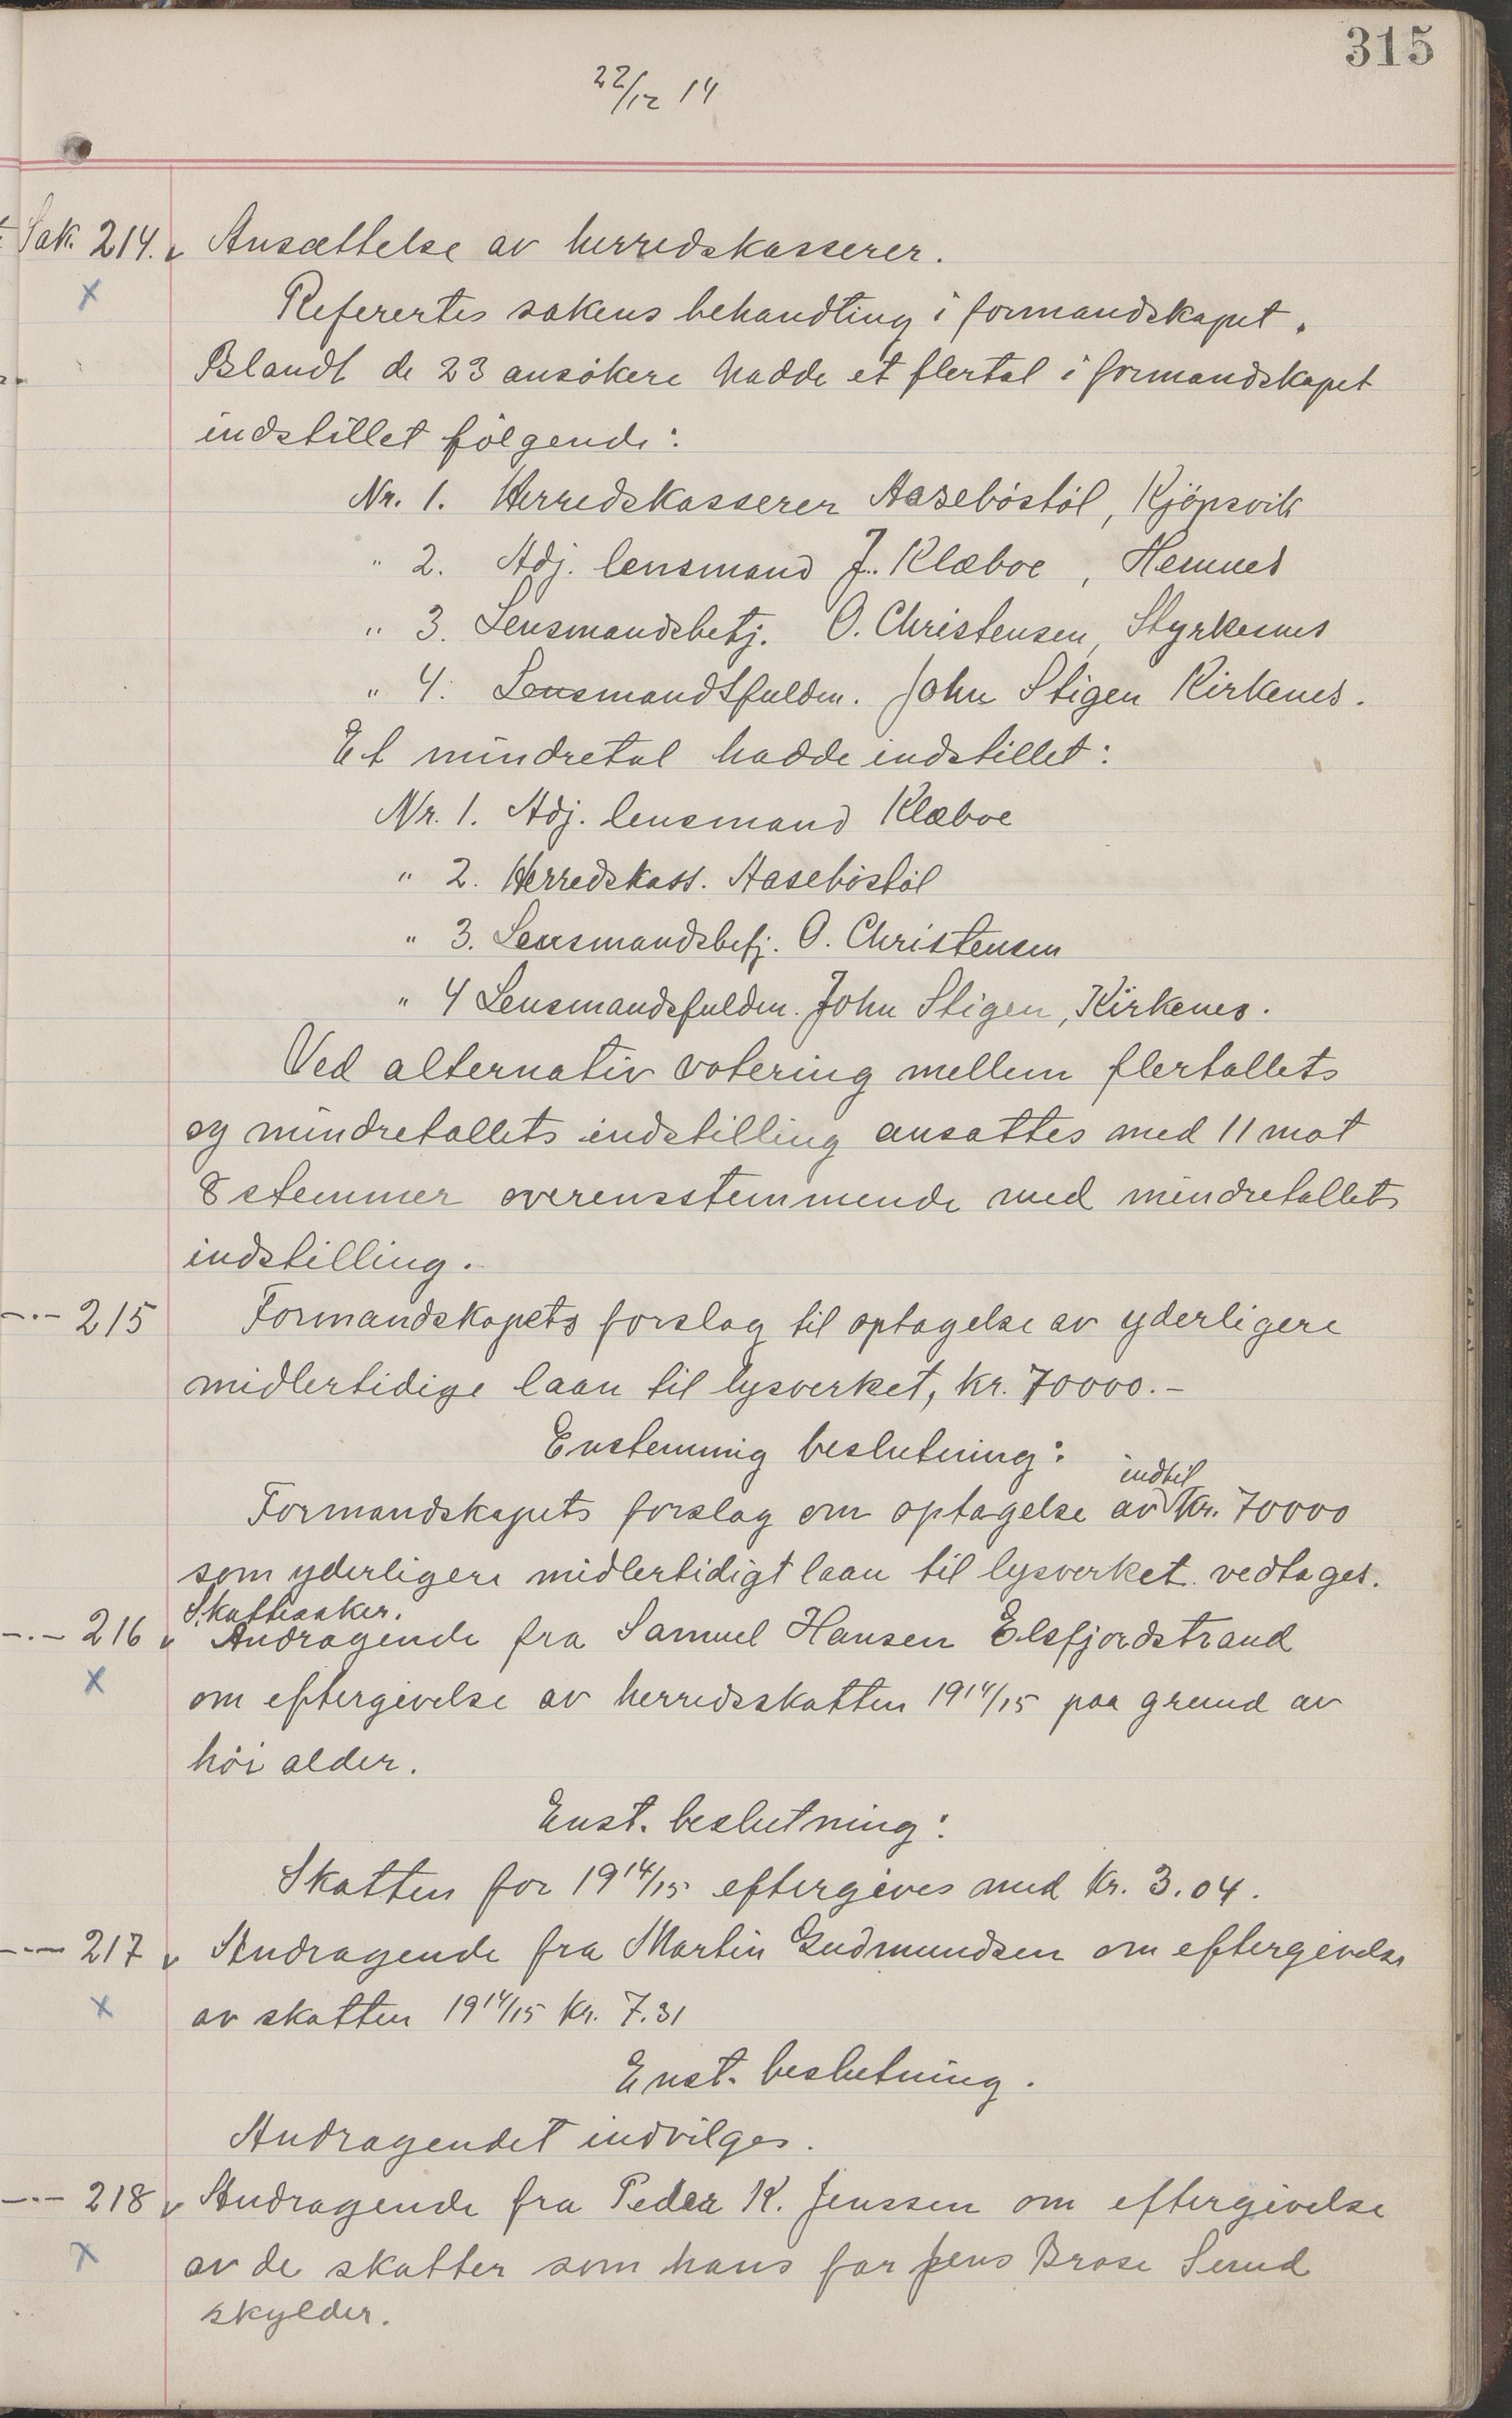 315
22/12 14
Sak. 214. Ansættelse av herredskasserer.
Referertes sakens behandling i formandskapet.
Blandt de 23 ansökere hadde et flertal i formandskapet
indstillet fölgende:
Nr. 1. Herredskasserer Aaseböstöl, Kjöpsvik
" 2. Adj. lensmand J. Klæboe, Hemnes
" 3. Lensmandsbetj. O. Christensen, Styrkesnes
" 4. Lensmandsfuldm. John Stigen Kirkenes.
Et mindretal hadde indstillet:
Nr. 1. Adj. lensmand Klæboe
" 2. Herredskass. Aaseböstöl
" 3. Lensmandsbetj. O. Christensen
" 4 Lensmandsfuldm. John Stigen, Kirkenes.
Ved alternativ votering mellem flertallets
og mindretallets indstilling ansattes med 11 mot
8 stemmer overensstemmende med mindretallets
indstilling.
-"- 215 Formandskapets forslag til optagelse av yderligere
midlertidige laan til lysverket, kr. 70000.-
Enstemmig beslutning:
Formandskapets forslag om optagelse av indtil kr. 70000
som yderligere midlertidigt laan til lysverket vedtages.
Skattesaker.
-"- 216 Andragende fra Samuel Hansen Elsfjordstrand
om eftergivelse av herredsskatten 1914/15 paa grund av
höi alder.
Enst. beslutning:
Skatten for 1914/15 eftergives med kr. 3.04.
-"- 217 Andragende fra Martin Gudmundsen om eftergivelse
av skatten 1914/15 kr. 7.31
Enst. beslutning.
Andragendet indvilges.
-"- 218 Andragende fra Peder K. Jenssen om eftergivelse
av de skatter som hans far Jens Brose
skylder.